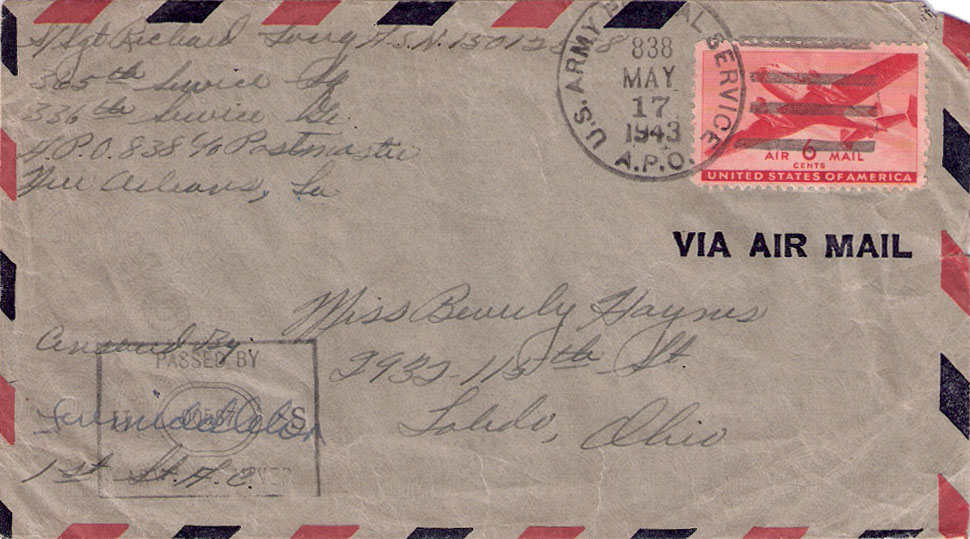 S/Sgt Richard A.S.N. 150128
365th Service Sq
336th Service Gr.
A.P.O. 838 c/o Postmaster
New Orleans, La
U.S. ARMY POSTAL SERVICE
838
MAY
17
1943
A.P.O.
AIR 6 MAIL
CENTS
UNITED STATES OF AMERICA
VIA AIR MAIL
Miss Beverly Haynes
2932-115th St
Toledo, Ohio
Censored By
PASSED BY
S
1st Lt. A.C.